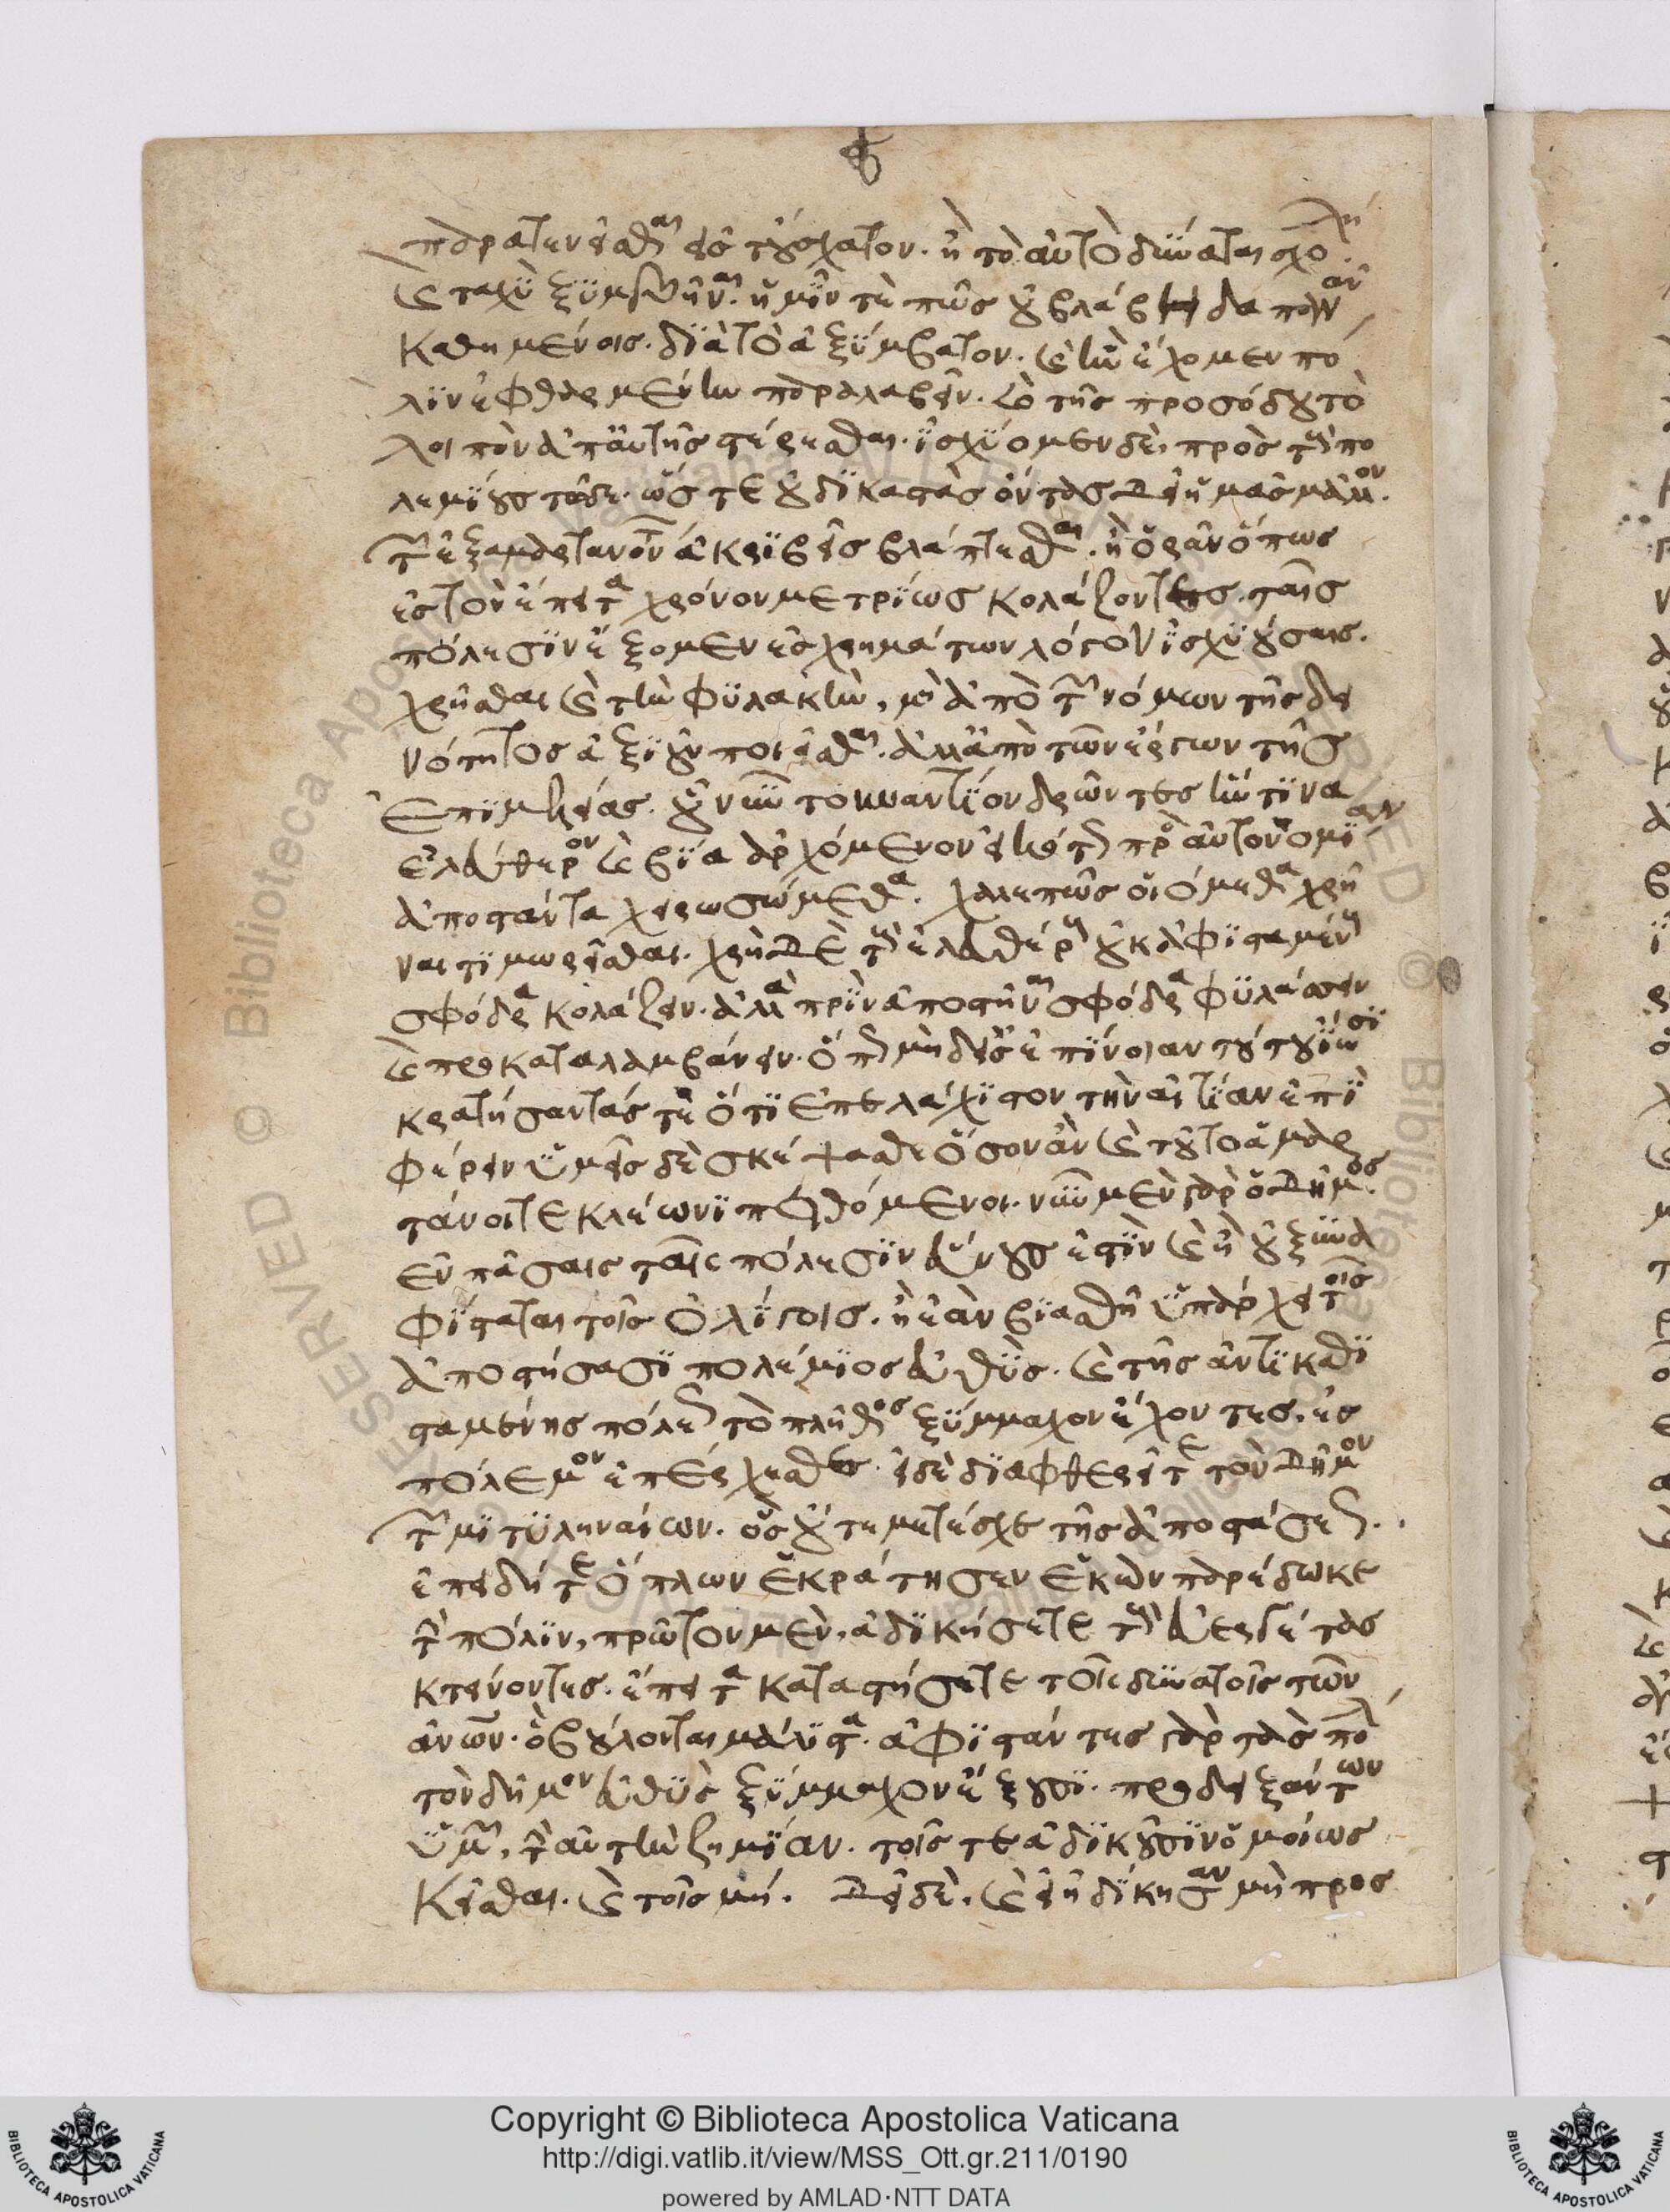 παρατενεῖσθαι ἐς τοὔσχατον. εἰ τὸ αὐτὸ δύναται σχολῆ
καὶ ταχὺ ξυμβῆναι. ἡμῖν τὲ πῶς οὐ βλάβη δαπανᾶν
καθημένοις. διὰ τὸ ἀξύμβατον. καὶ ἢν ἔχομεν πό
λιν ἐφθαρμένην παραλαβεῖν. καὶ τῆς προσόδου τὸ
λοιπὸν ἀπ' αὐτῆς στέρεσθαι. ἰσχύομεν δὲ, πρὸς τοὺς πο
λεμίους τῶδε. ὥστε οὐ δικαστὰς ὄντας δεῖ ἡμᾶς μᾶλλον.
τῶν ἐξαμαρτανόντων ἀκριβεῖς βλάπτεσθαι. ἢ ὁρᾶν ὅπως
ἐς τὸν ἔπειτα χρόνον μετρίως κολάζοντες. ταῖς
πόλεσιν ἕξομεν ἐς χρημάτων λόγον ἰσχυούσαις.
χρῆσθαι καὶ τὴν φυλακὴν, μὴ ἀπὸ τῶν νόμων τῆς δει
νότητος ἀξιοῦν ποιεῖσθαι. ἀλλ' ἀπὸ τῶν ἔργων τῆς
ἐπιμελείας. οὗ νῦν τοὐναντίον δρῶντες ἤν τινα
ἐλεύθερον καὶ βία ἀρχόμενον εἰκότως πρὸς αὐτονομίαν
ἀποστάντα χειρωσώμεθα. χαλεπῶς οἰόμεθα χρῆ
ναι τιμωρεῖσθαι. χρὴ δὲ τοὺς ἐλευθέρους οὐκ ἀφισταμένους
σφόδρα κολάζειν. ἀλλὰ πρὶν ἀποστῆναι σφόδρα φυλάσσειν
καὶ προκαταλαμβάνειν. ὅπως μηδ' ἐς ἐπίνοιαν τούτου ἴωσι
κρατήσαντάς τε ὅτι ἐπ' ἐλάχιστον τὴν αἰτίαν ἐπι
φέρειν ὑμεῖς δὲ σκέψασθε ὅσον ἂν καὶ τοῦτο ἁμαρ
τάνοιτε κλέωνι πειθόμενοι. νῦν μὲν γὰρ ὁ δῆμος
ἐν πάσαις ταῖς πόλεσιν εὔνους ἐστὶν καὶ ἢ οὐ ξυνα
φίσταται τοῖς ὀλίγοις. ἢ ἐὰν βιασθῆ ὑπάρχει τοῖς
ἀποστήσασι πολέμιος εὐθὺς. καὶ τῆς ἀντικαθι
σταμένης πόλεως τὸ πλῆθος ξύμμαχον ἔχοντες. ἐς
πόλεμον ἐπέρχεσθε. εἰ δὲ διαφθερεῖτε τὸν δῆμον
τῶν μιτυληναίων. ὃς οὔτε μετέσχε τῆς ἀποστάσεως.
ἐπειδή τε ὅπλων ἐκράτησεν ἑκὼν παρέδωκε
τὴν πόλιν, πρῶτον μὲν, ἀδικήσετε τοὺς εὐεργέτας
κτείνοντες. ἔπειτα καταστήσετε τοῖς δυνατοῖς τῶν
ἀνθρώπων. ὃ βούλονται μάλιστα. ἀφιστάντες γὰρ τὰς πόλεις
τὸν δῆμον εὐθὺς ξύμμαχον ἕξουσι. προδειξάντων
ὑμῶν, τὴν αὐτὴν ζημίαν. τοῖς τε ἀδικοῦσιν ὁμοίως
κεῖσθαι. καὶ τοῖς μή. δεῖ δὲ. καὶ εἰ ἠδίκησαν μὴ προσ
Copyright © Biblioteca Apostolica Vaticana
http://digi.vatlib.it/view/MSS_Ott.gr.211/0190
powered by AMLAD·NTT DATA